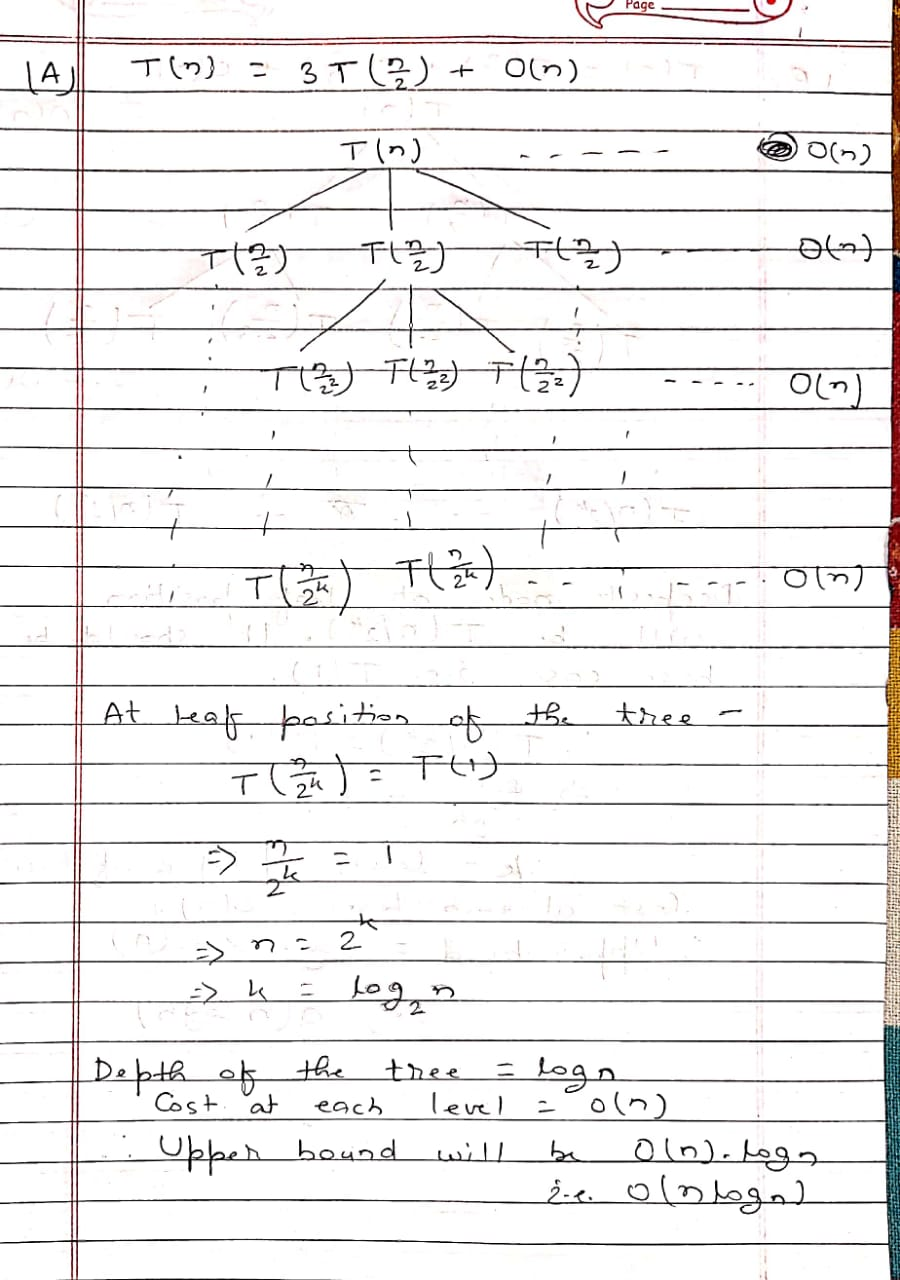 Page
(A) T(n) = 3T(n/2) + O(n)
T(n) - - - - - O(n)
T(n/2) T(n/2) T(n/2) - - - - - O(n)
T(n/2²) T(n/2²) T(n/2²) - - - - - O(n)
T(n/2ᵏ) T(n/2ᵏ) - - - - - - O(n)
At leaf position of the tree -
T(n/2ᵏ) = T(1)
⇒ n/2ᵏ = 1
⇒ n = 2ᵏ
⇒ k = log₂n
Depth of the tree = logn
Cost at each level = O(n)
∴ Upper bound will be O(n).logn
i.e. O(nlogn)